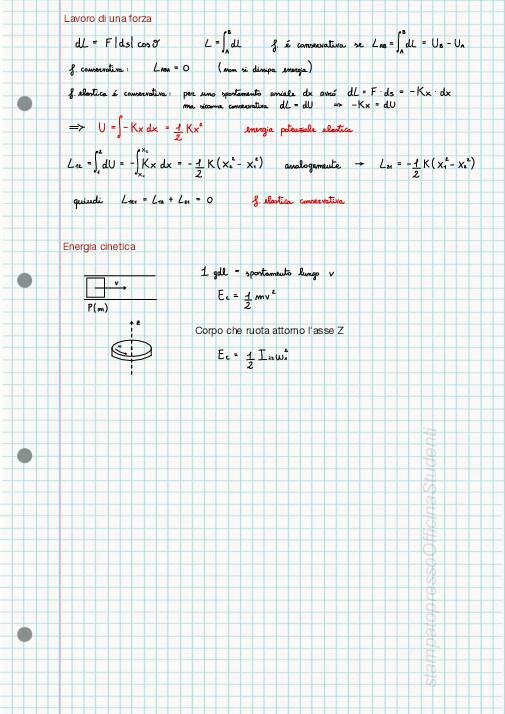 Lavoro di una forza
dL = F|ds| cosθ L = ∫_A^B dL f. è conservativa se L_AB = ∫_A^B dL = U_B - U_A
f. conservativa: L_ABA = 0 (non si dissipa energia)
f. elastica è conservativa: per uno spostamento assiale dx avrò dL = F · ds = -Kx · dx
ma siccome conservativa dL = dU ⇒ -Kx = dU
⇒ U = ∫-Kx dx = 1/2 Kx² energia potenziale elastica
L_12 = ∫_1^2 dU = -∫_{x_1}^{x_2} Kx dx = -1/2 K(x_2² - x_1²) analogamente → L_21 = -1/2 K(x_1² - x_2²)
quindi L_121 = L_12 + L_21 = 0 f. elastica conservativa
Energia cinetica
1 gdl - spostamento lungo v
v
E_c = 1/2 mv²
P(m)
z
Corpo che ruota attorno l'asse Z
E_c = 1/2 I_zz ω_z²
stampatopressoOfficinaStudenti